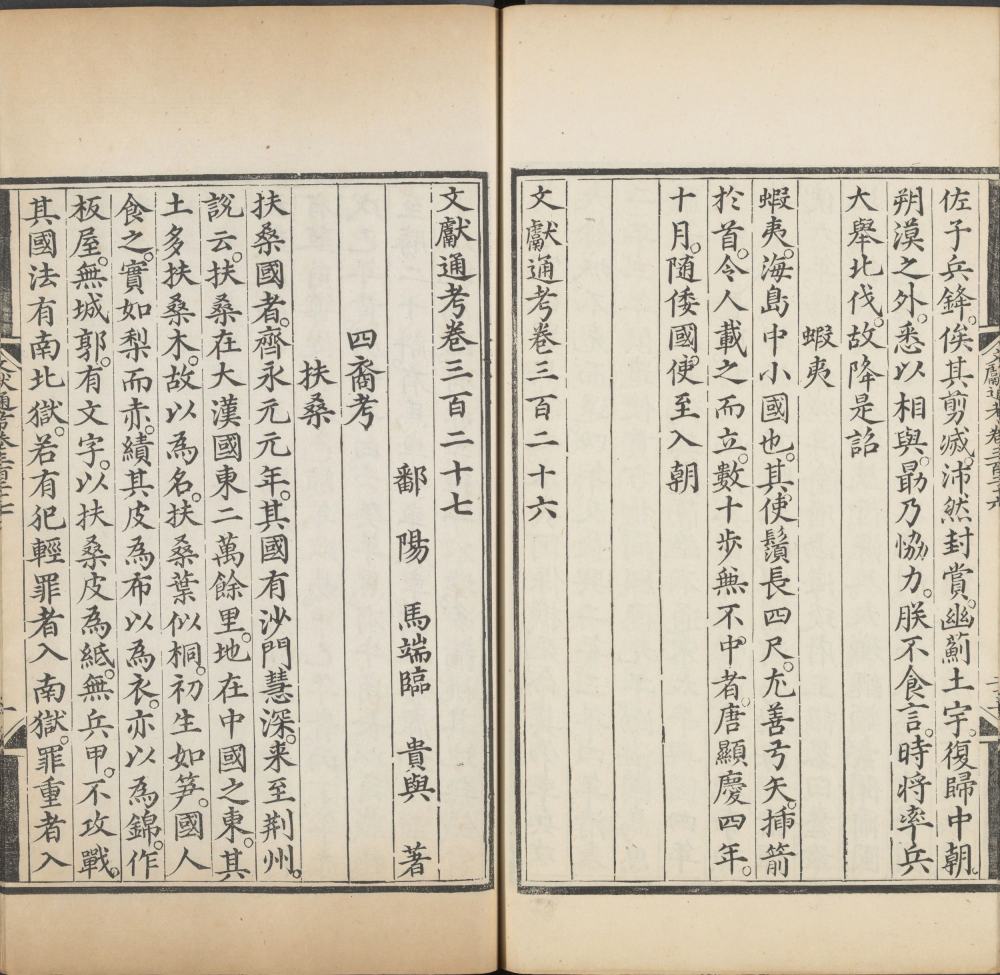 佐子兵鋒。俟其剪滅。沛然封賞。幽薊土宇。復歸中朝。
朔漠之外。悉以相與。勗乃恊力。朕不食言。時将率兵
大舉北伐。故降是詔
蝦夷
蝦夷。海島中小國也。其使鬚長四尺。尤善弓矢。挿箭
於首。令人載之而立。數十歩無不中者。唐顯慶四年。
十月。随倭國使至入朝
文獻通考卷三百二十六
文獻通考卷三百二十七
鄱陽 馬端臨 貴與 著
四裔考
扶桑
扶桑國者。齊永元元年。其國有沙門慧深。来至荆州。
說云。扶桑在大漢國東二萬餘里。地在中國之東。其
土多扶桑木。故以為名。扶桑葉似桐。初生如笋。國人
食之。實如梨而赤。績其皮為布以為衣。亦以為錦。作
板屋。無城郭。有文字。以扶桑皮為紙。無兵甲。不攻戰。
其國法有南北獄。若有犯輕罪者入南獄。罪重者入